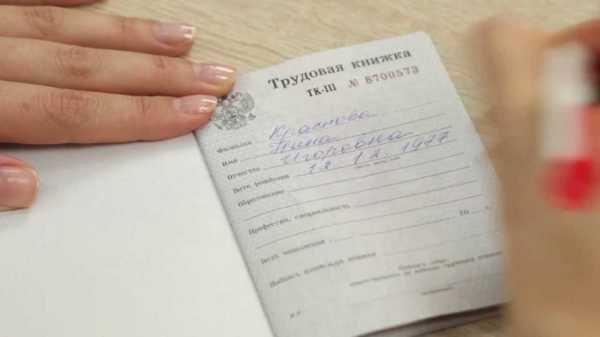 Трудовая книжка
ТК-III № 8700573
Фамилия Краснова
Имя Нина
Отчество Игоревна
Дата рождения 12.12.1977
Образование
Профессия, специальность
Дата заполнения
Подпись владельца книжки
М.П.